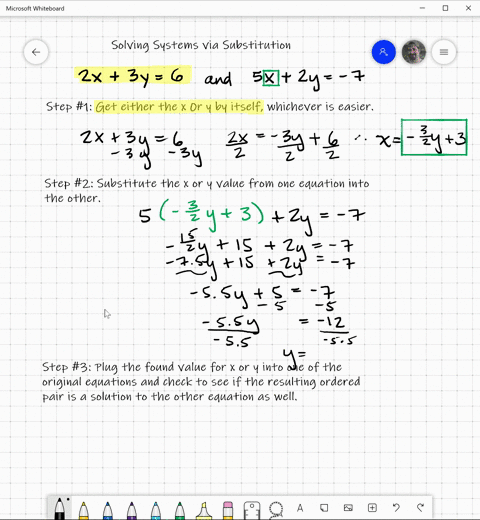 Microsoft Whiteboard
Solving Systems via Substitution
2x + 3y = 6 and 5x + 2y = -7
Step #1: Get either the x Or y by itself, whichever is easier.
2x + 3y = 6
- 3y - 3y
2x/2 = -3y/2 + 6/2 ∴ x = -3/2y + 3
Step #2: Substitute the x or y value from one equation into
the other.
5 (-3/2y + 3) + 2y = -7
-15/2y + 15 + 2y = -7
-7.5y + 15 + 2y = -7
-5.5y + 5 = -7
- 5 -5
-5.5y/-5.5 = -12/-5.5
y =
Step #3: Plug the found value for x or y into one of the
original equations and check to see if the resulting ordered
pair is a solution to the other equation as well.
A